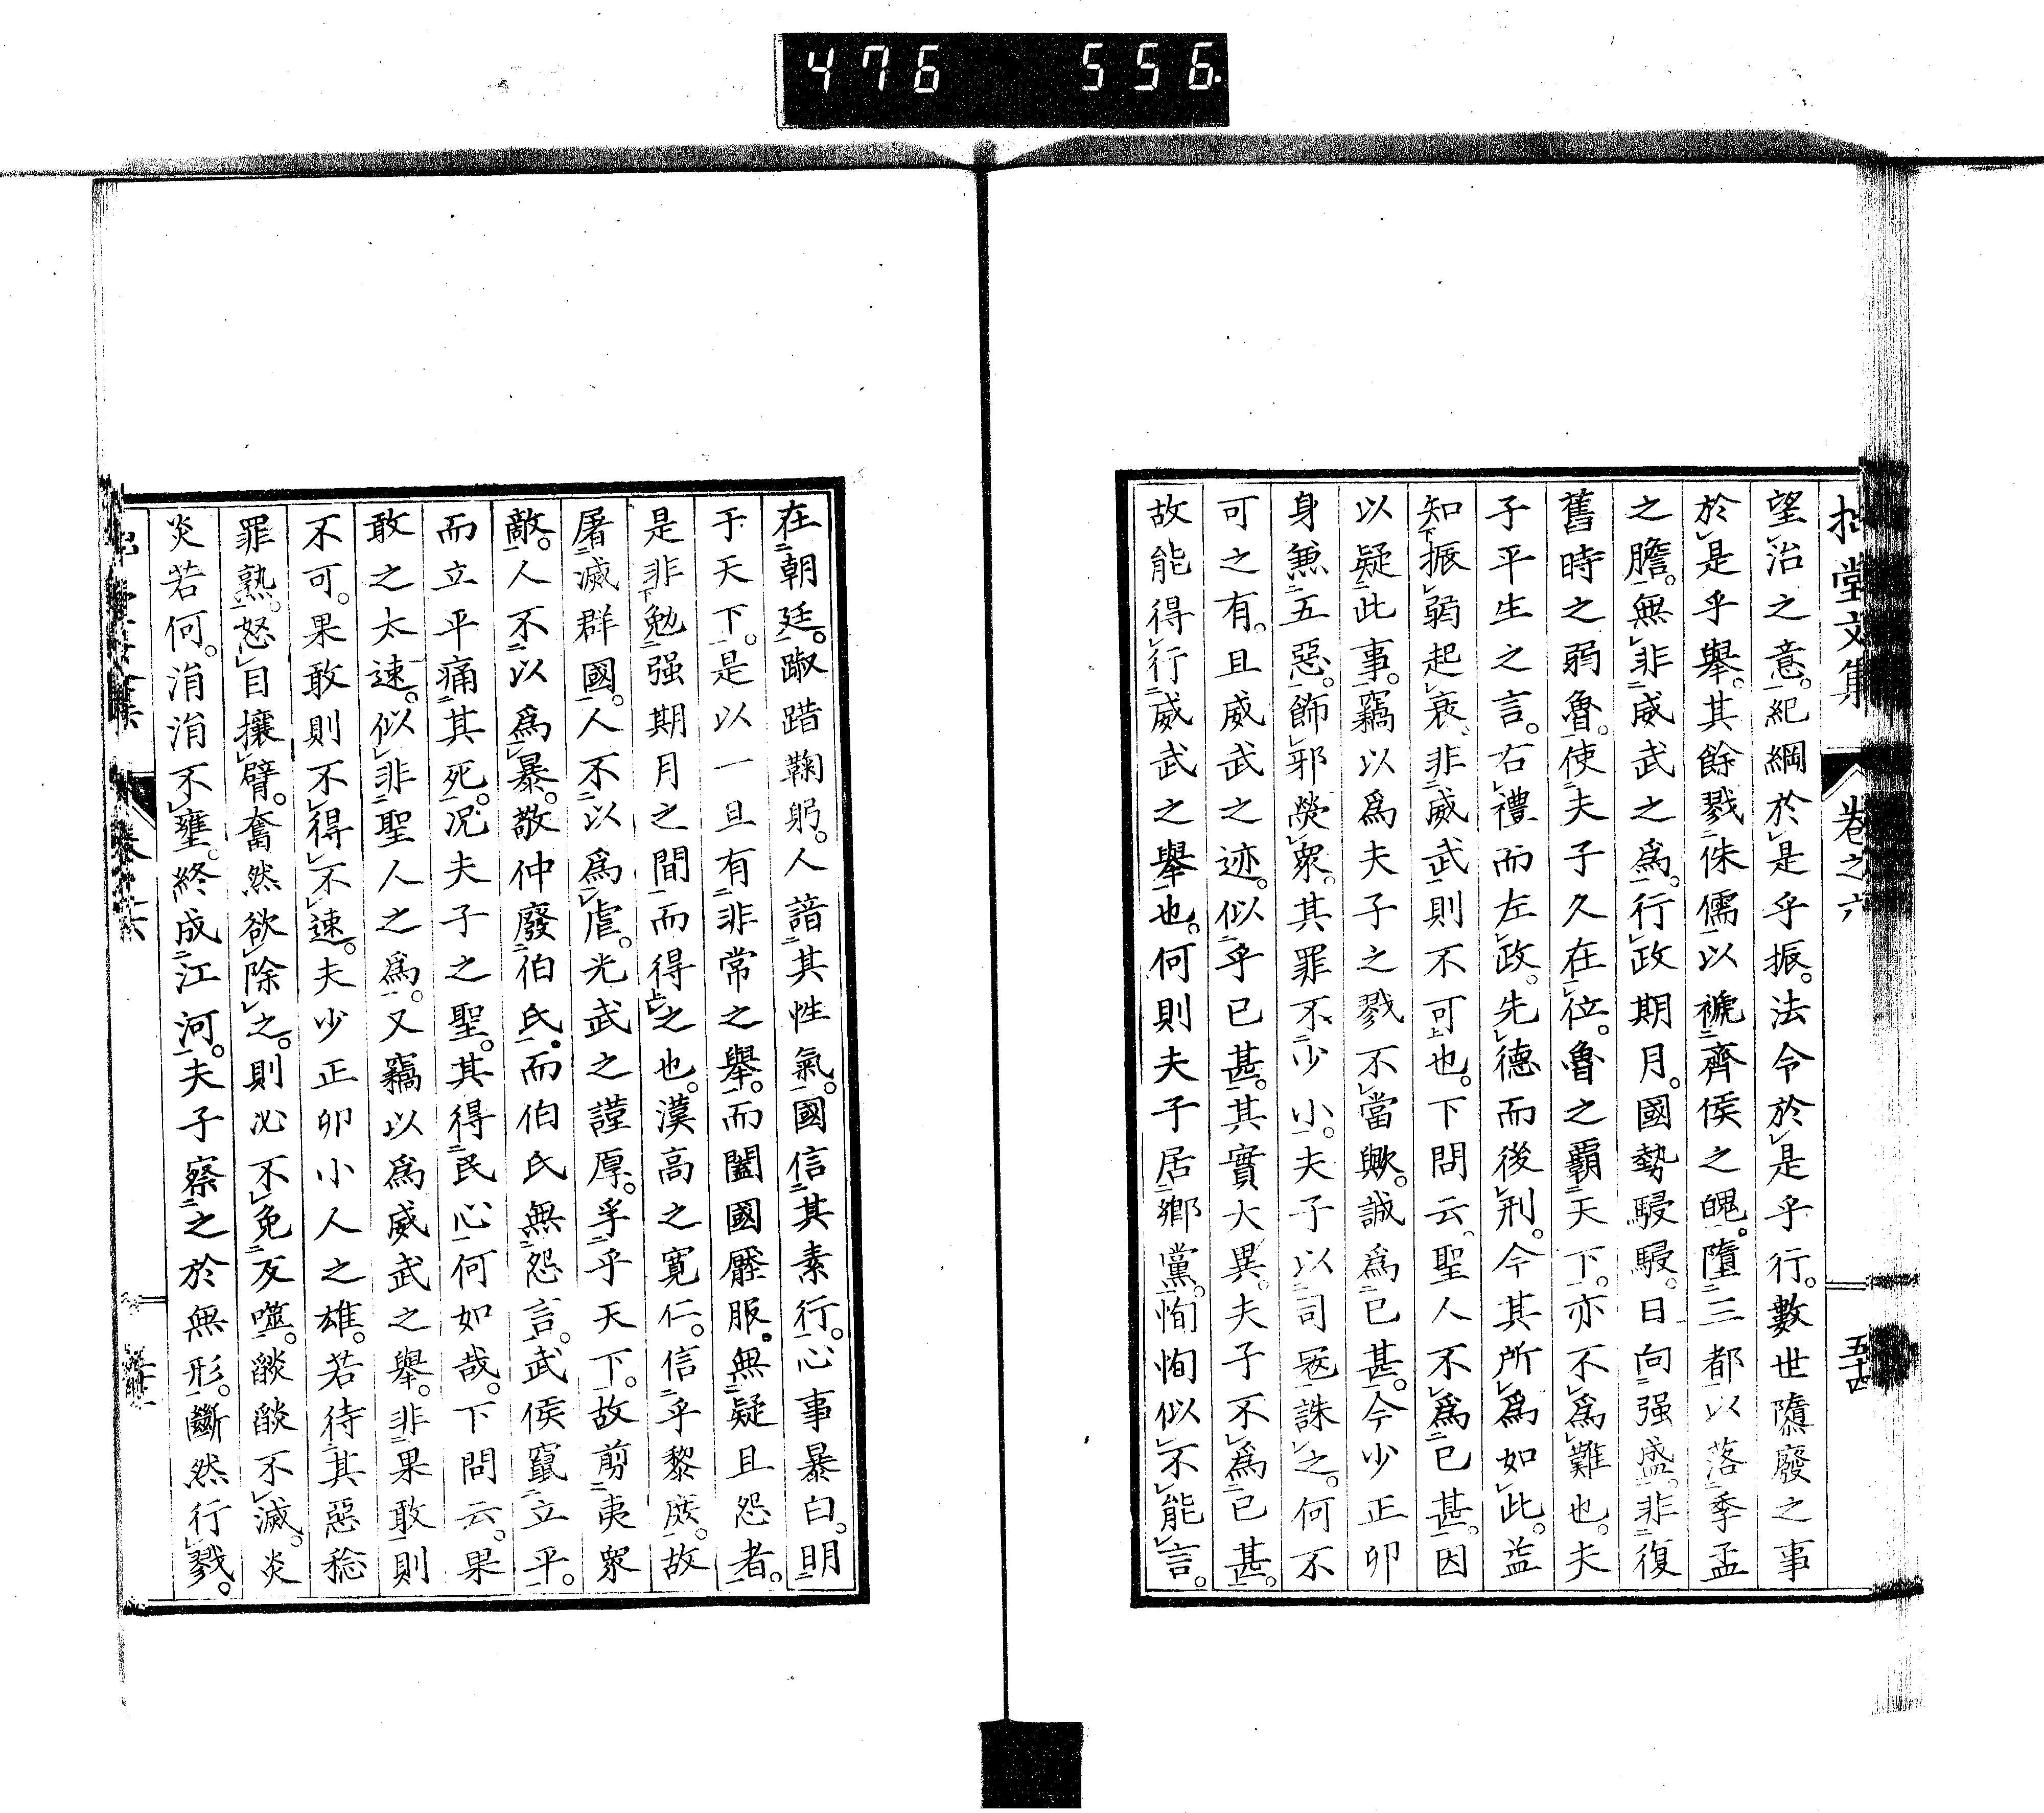 476 556
堂文集 卷之六 五十四
望治之意。紀綱於是乎振。法令於是乎行。數世隳廢之事
於是乎舉。其餘戮侏儒以褫齊侯之魄。墮三都以落季孟
之膽。無非威武之為。行政期月。國勢駸駸。日向强盛。非復
舊時之弱魯。使夫子久在位。魯之霸天下。亦不為難也。夫
子平生之言。右禮而左政。先德而後刑。今其所為如此。益
知振弱起衰、非威武則不可也。下問云、聖人不為已甚。因
以疑此事。竊以爲夫子之戮不當歟。誠爲已甚。今少正卯
身兼五惡。飾邪熒衆。其罪不少小。夫子以司寇誅之。何不
可之有。且威武之迹。似乎已甚。其實大異。夫子不爲已甚。
故能得行威武之舉也。何則夫子居鄉黨。恂恂似不能言。
在朝廷。踧踖鞠躬。人諳其性氣。國信其素行。心事暴白。明
于天下。是以一旦有非常之舉。而闔國壓服。無疑且怨者。
是非勉强期月之間而得之也。漢高之寬仁。信乎黎庶。故
屠滅群國。人不以爲虐。光武之謹厚。孚乎天下。故剪夷衆
敵。人不以爲暴。敬仲廢伯氏。而伯氏無怨言。武侯竄立平。
而立平痛其死。况夫子之聖。其得民心何如哉。下問云。果
敢之太速。似非聖人之爲。又竊以爲威武之舉。非果敢則
不可。果敢則不得不速。夫少正卯小人之雄。若待其惡稔
罪熟。怒目攘臂。奮然欲除之。則必不免反噬。燄燄不滅。炎
炎若何。涓涓不壅。終成江河。夫子察之於無形。斷然行戮。